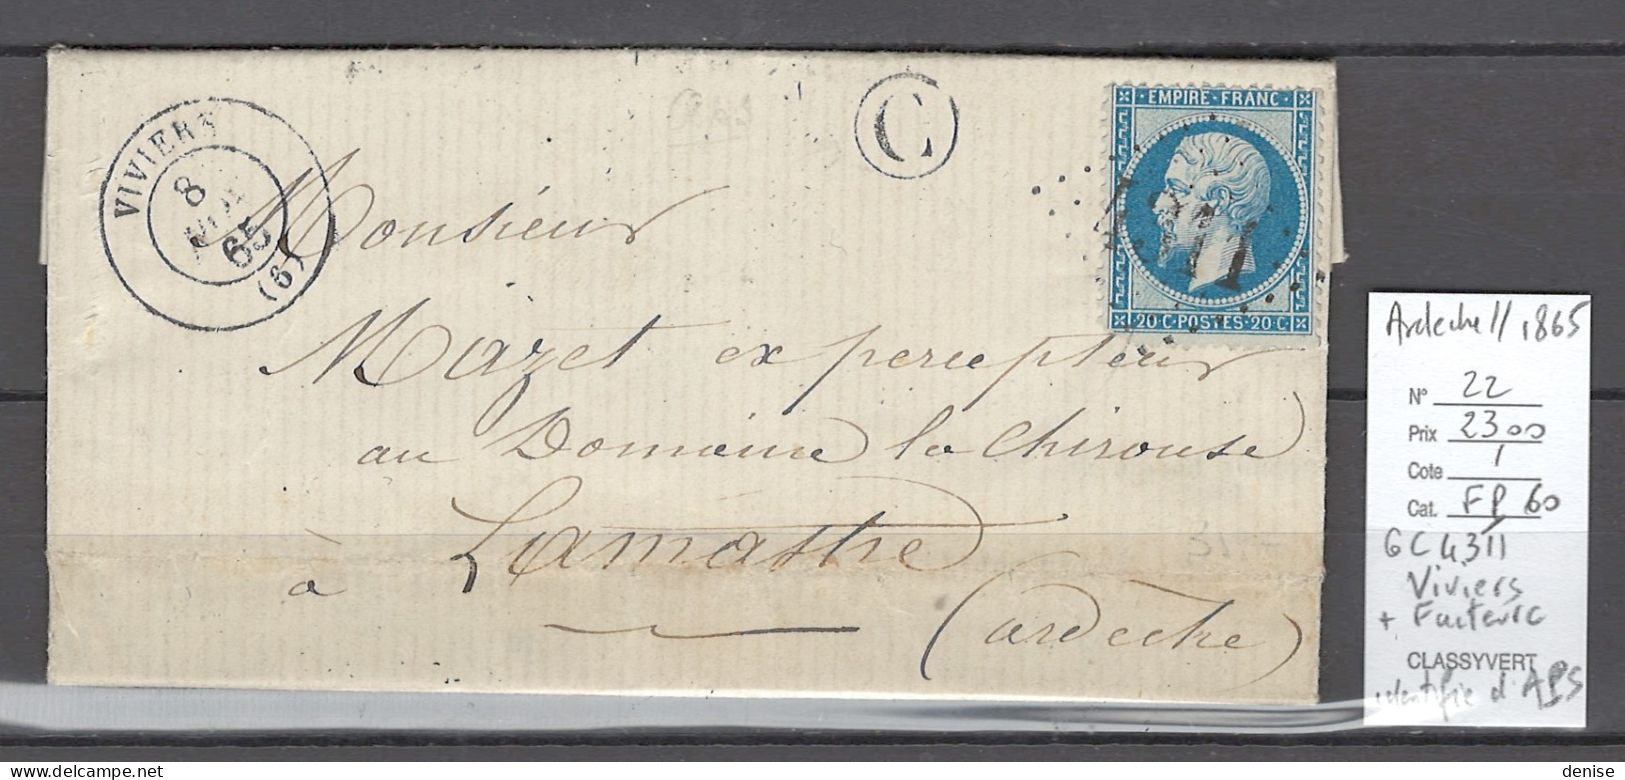 VIVIERS
8
65
(6)
C
EMPIRE-FRANC
4311
20·C·POSTES·20·C
Monsieur
Mazet ex percepteur
au Domaine la Chirouse
à Lamastre
(ardeche)
Ardeche // 1865
N° 22
Prix 2300
Cote /
Cat. FP 60
GC 4311
Viviers
+ Facteur C
CLASSYVERT
identifié d'APS
delcampe.net
denise